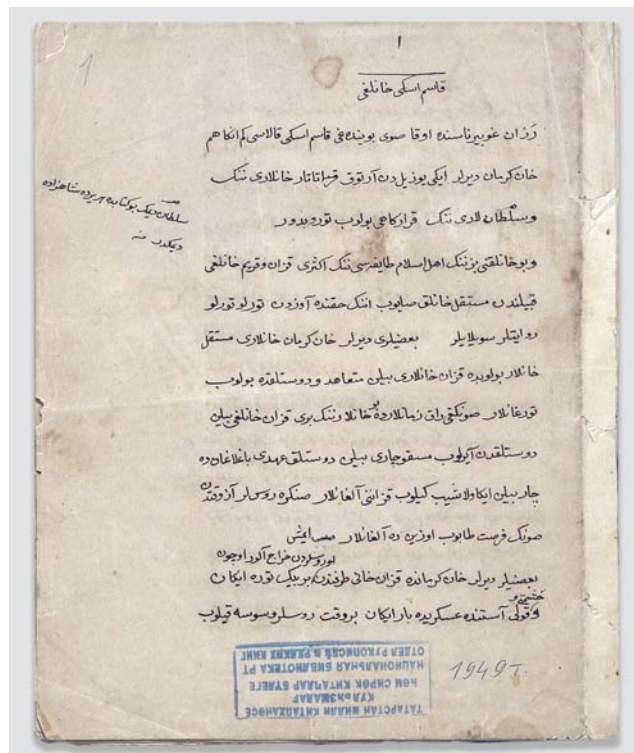 1
١
قاسم اسكی خانلغی
رزان غوبیرناسنده اوقا صوی بوینده غی قاسم اسكی قالاسی كم انكا هم
خان كرمان دیرلر ایكی یوز یل دن آرتوق قرا تاتار خانلاری ننك
وسلطان لاری ننك قراركاهی بولوب تورو بدور
وبو خانلقنی بزننك اهل اسلام طایفه سی ننك اكثری قزان وقریم خانلغی
قبیلندن مستقل خانلق صایوب اننك حقنده آوزدن تورلو تورلو
روایتلر سویلایلر بعضیلری دیرلر خان كرمان خانلاری مستقل
خانلار بولوبده قزان خانلاری بیلن متعاهد و دوستلقده بولوب
تورغانلار صونكغی راق زمانلارده بو خانلارننك بری قزان خانلغی بیلن
دوستلقدن آیرلوب مسقو چاری بیلن دوستلق عهدی باغلاغان ده
چار بیلن ایكاولاشیب كیلوب قزاننی آلغانلار صنكره روسلر آز وقتدن
صونك فرصت طابوب اوزین ده آلغانلار
اوروسلردن خراج آلور اوچون
بعضیلر دیرلر خان كرمانده قزان خانی طرفندن بر بیك توره ایكان
وقولی آستنده عسكریده بار ایكان بر وقت روسلر وسوسه قیلوب
سلطان دیمك بو كتابده هر یرده شاهزاده
دیمكدر منه
ТАТАРСТАН МИЛЛИ КИТАПХАНӘСЕ
КУЛЪЯЗМАЛАР
ҺӘМ СИРӘК КИТАПЛАР БҮЛЕГЕ
НАЦИОНАЛЬНАЯ БИБЛИОТЕКА РТ
ОТДЕЛ РУКОПИСЕЙ И РЕДКИХ КНИГ
1949 т.